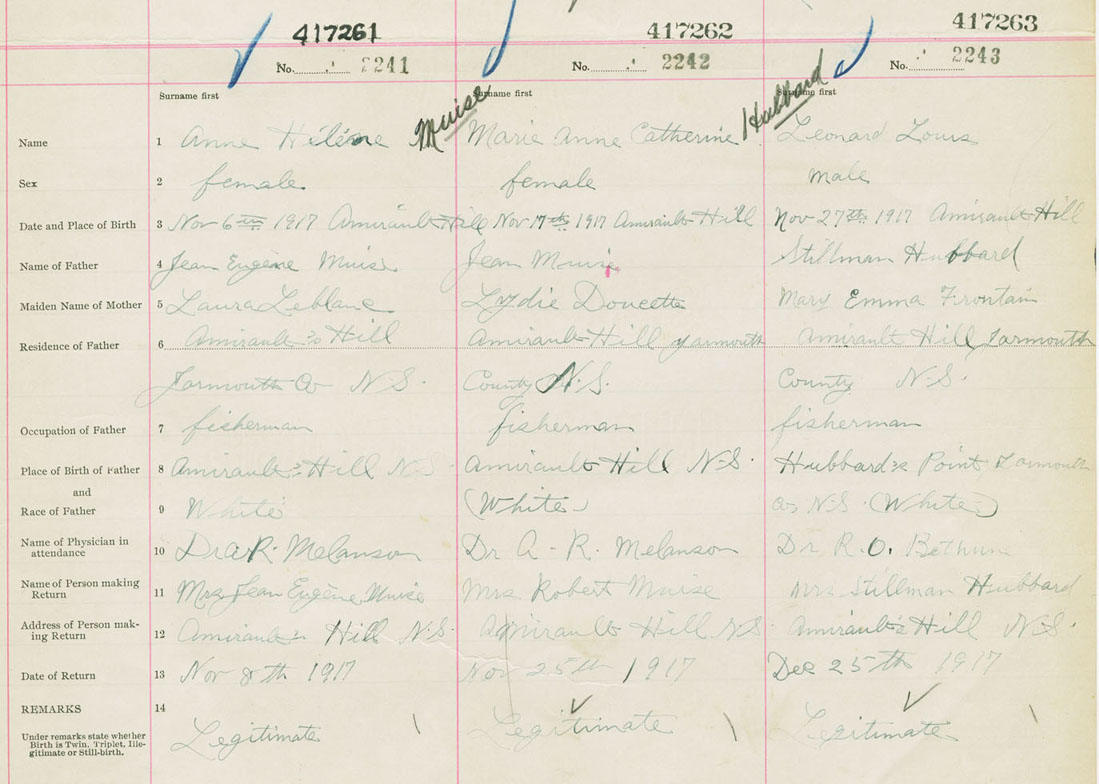 417261 417262 417263
No. 2241 No. 2242 No. 2243
Surname first Surname first Surname first
Muise Hubbard
Name 1 Anne Hélène Marie Anne Catherine Leonard Louis
Sex 2 female female male
Date and Place of Birth 3 Nov 6th 1917 Amirault Hill Nov 17th 1917 Amirault Hill Nov 27th 1917 Amirault Hill
Name of Father 4 Jean Eugène Muise Jean Muise Stillman Hubbard
Maiden Name of Mother 5 Laura Leblanc Lydie Doucette Mary Emma Frontain
Residence of Father 6 Amirault's Hill Amirault Hill Yarmouth Amirault Hill, Yarmouth
Yarmouth Co N.S. County N.S. County N.S.
Occupation of Father 7 fisherman fisherman fisherman
Place of Birth of Father 8 Amirault's Hill N.S. Amirault Hill N.S. Hubbard's Point Yarmouth
and
Race of Father 9 White (White) Co, N.S. (White)
Name of Physician in attendance 10 Dr A.R. Melanson Dr A. R. Melanson Dr R. O. Bethune
Name of Person making Return 11 Mrs Jean Eugène Muise Mrs. Robert Muise Mrs Stillman Hubbard
Address of Person making Return 12 Amirault's Hill N.S. Amirault Hill N.S. Amirault's Hill N.S.
Date of Return 13 Nov 8th 1917 Nov 25th 1917 Dec 25th 1917
REMARKS 14
Under remarks state whether Birth is Twin, Triplet, Illegitimate or Still-birth. Legitimate Legitimate Legitimate